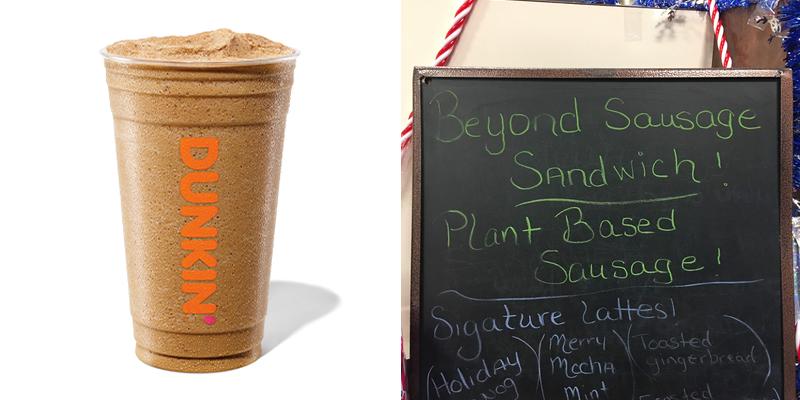 DUNKIN'
Beyond Sausage
Sandwich!
Plant Based
Sausage!
Sigature Lattes!
(Holiday
nog
(Merry
Mocha
Mint
(Toasted
gingerbread)
Toasted